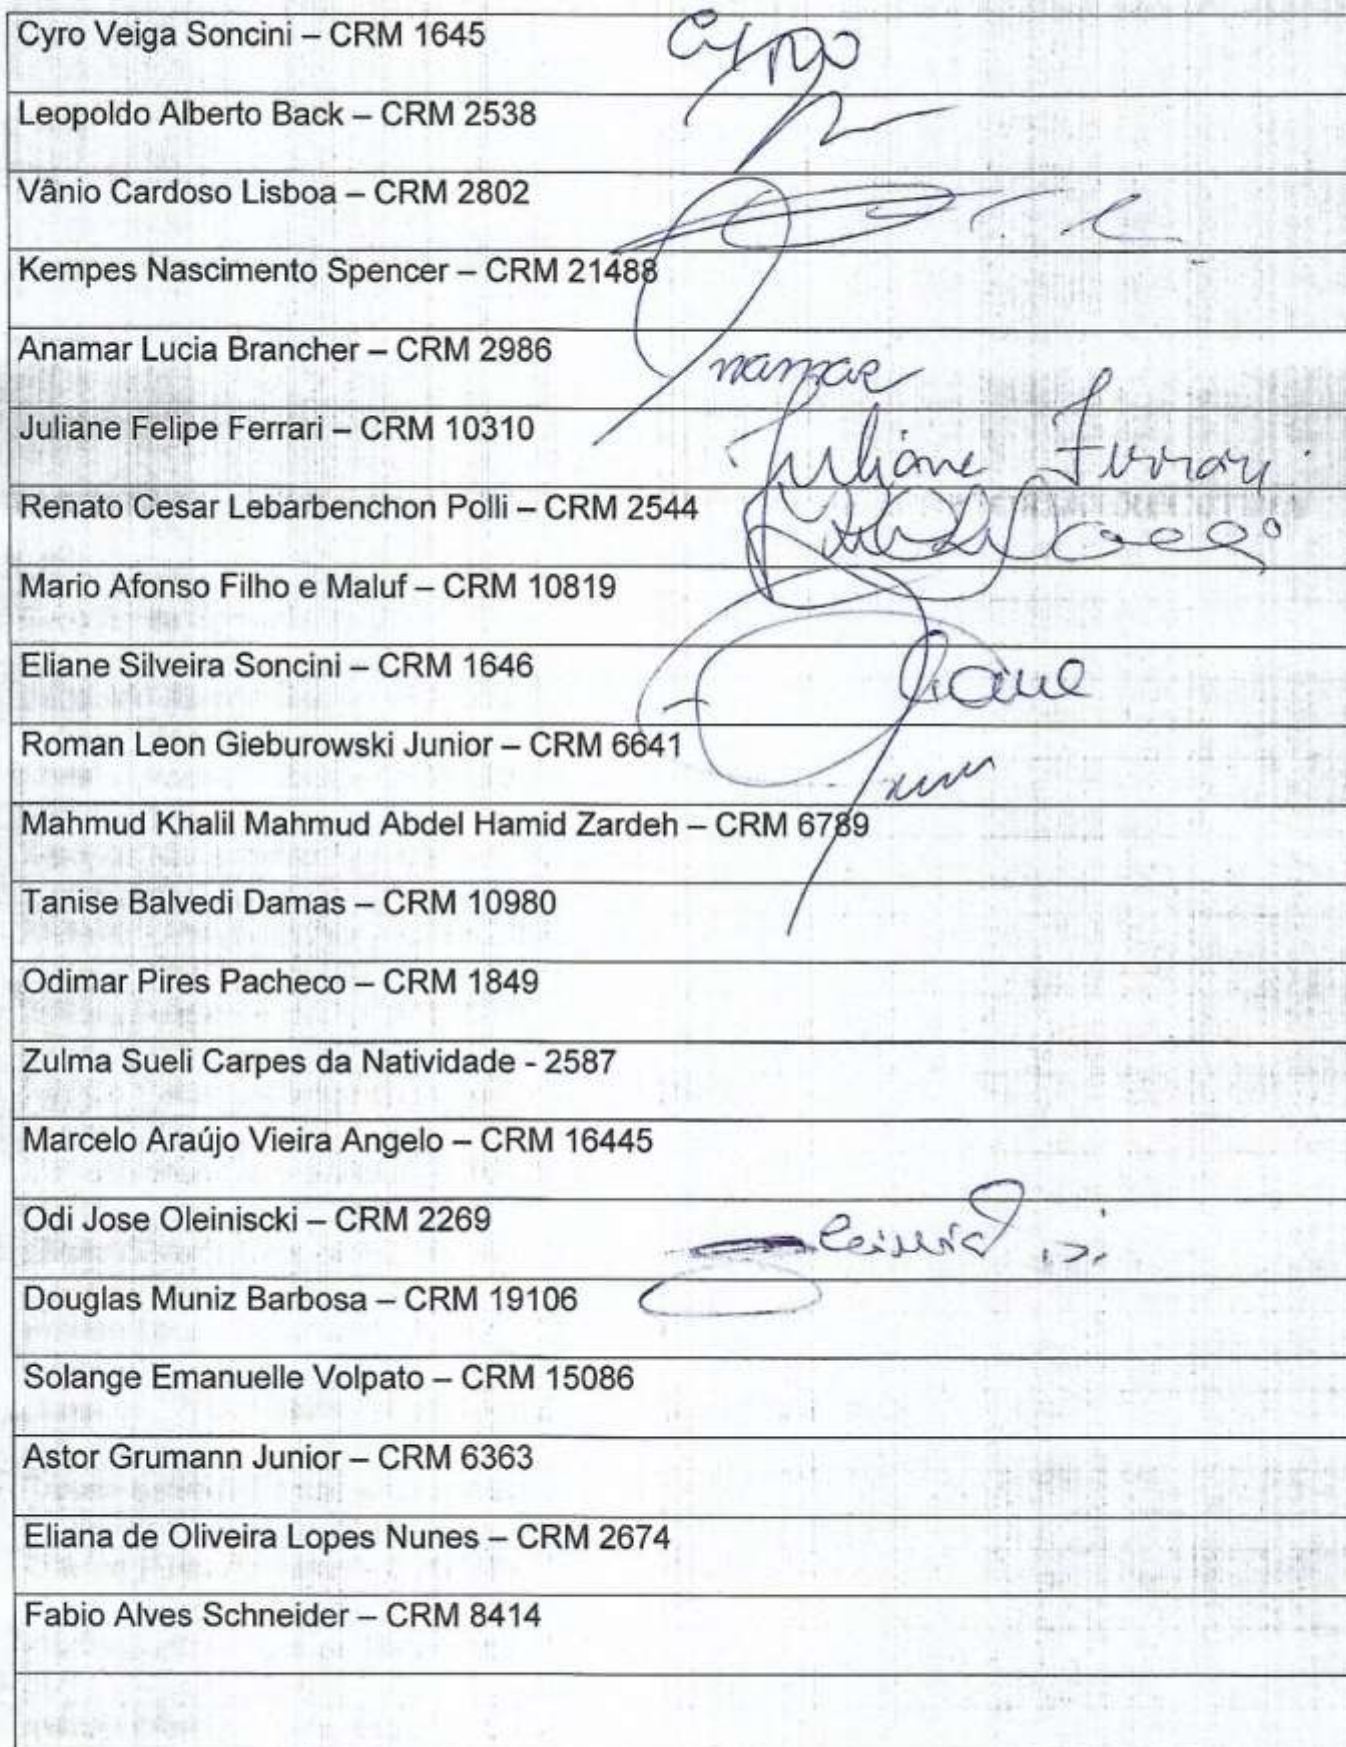 Cyro Veiga Soncini – CRM 1645 Cyro
Leopoldo Alberto Back – CRM 2538
Vânio Cardoso Lisboa – CRM 2802
Kempes Nascimento Spencer – CRM 21488
Anamar Lucia Brancher – CRM 2986
Juliane Felipe Ferrari – CRM 10310 Juliane Ferrari
Renato Cesar Lebarbenchon Polli – CRM 2544
Mario Afonso Filho e Maluf – CRM 10819
Eliane Silveira Soncini – CRM 1646 Eliane
Roman Leon Gieburowski Junior – CRM 6641
Mahmud Khalil Mahmud Abdel Hamid Zardeh – CRM 6789
Tanise Balvedi Damas – CRM 10980
Odimar Pires Pacheco – CRM 1849
Zulma Sueli Carpes da Natividade - 2587
Marcelo Araújo Vieira Angelo – CRM 16445
Odi Jose Oleiniscki – CRM 2269
Douglas Muniz Barbosa – CRM 19106
Solange Emanuelle Volpato – CRM 15086
Astor Grumann Junior – CRM 6363
Eliana de Oliveira Lopes Nunes – CRM 2674
Fabio Alves Schneider – CRM 8414